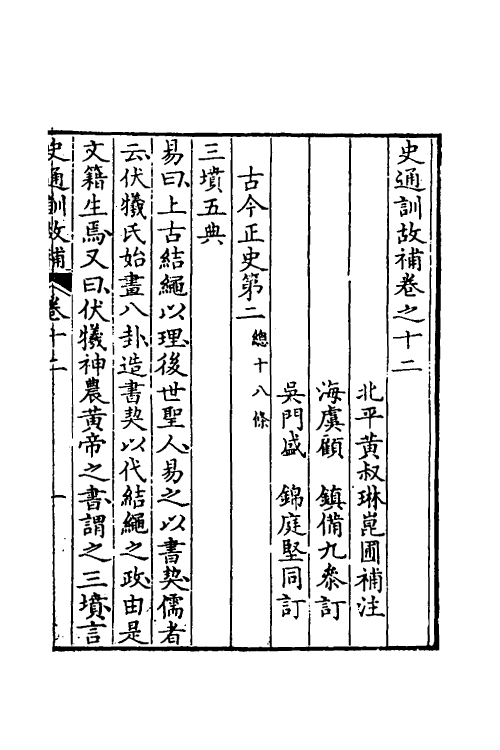 史通訓故補卷之十二
北平黃叔琳崑圃補注
海虞顧　鎮備九參訂
吳門盛　錦庭堅同訂
古今正史第二　總十八條
三墳五典
易曰上古結繩以理後世聖人易之以書契儒者
云伏犧氏始畫八卦造書契以代結繩之政由是
文籍生焉又曰伏犧神農黃帝之書謂之三墳言
史通訓故補　卷十二　一